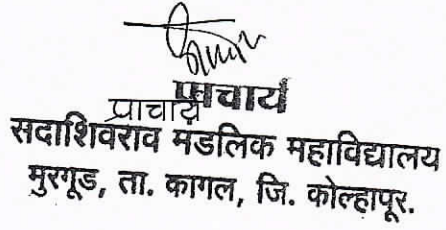 प्राचार्य
प्राचार्य
सदाशिवराव मंडलिक महाविद्यालय
मुरगूड, ता. कागल, जि. कोल्हापूर.